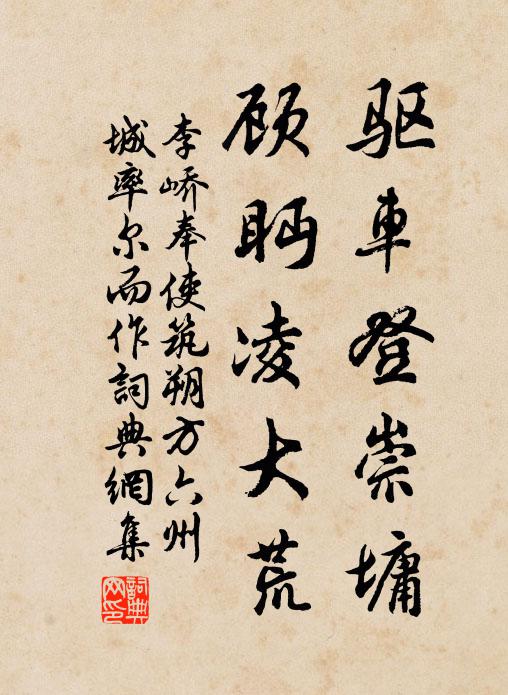 驱車登崇墉
顾眄凌大荒
李峤奉使筑朔方六州
城率尔而作詞典網集
詞典网印